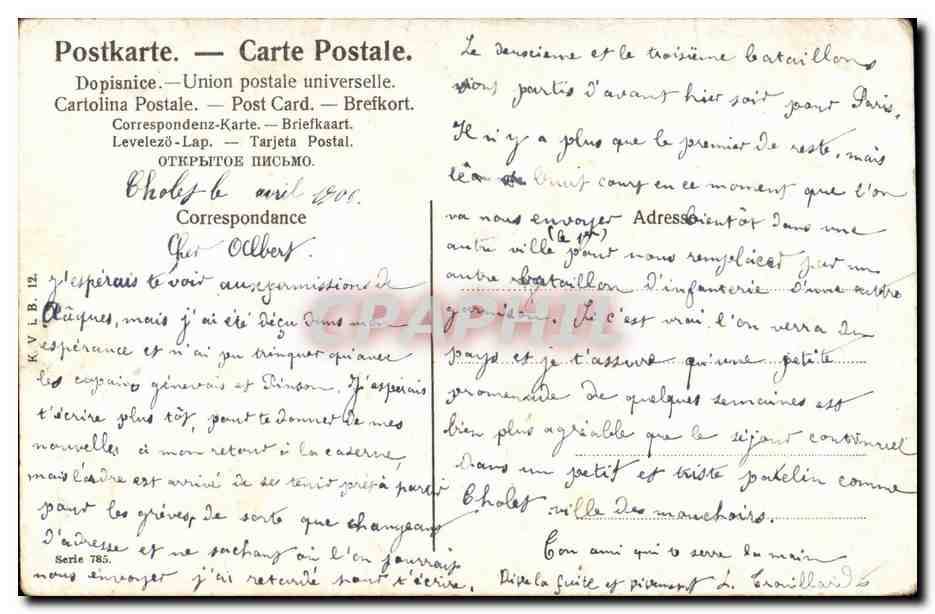 Postkarte. — Carte Postale.
Dopisnice. — Union postale universelle.
Cartolina Postale. — Post Card. — Brefkort.
Correspondenz-Karte. — Briefkaart.
Levelező-Lap. — Tarjeta Postal.
ОТКРЫТОЕ ПИСЬМО.
Cholet le avril 1906.
Correspondance
Cher Albert.
J'espérais te voir aux permissions de
Pâques, mais j'ai été déçu dans mon
espérance et n'ai pu trinquer qu'avec
les copains génevais et Pinson. J'espérais
t'écrire plus tôt, pour te donner de mes
nouvelles à mon retour à la caserne,
mais l'ordre est arrivé de se tenir prêt à partir
pour les grèves, de sorte que changeant
d'adresse et ne sachant où l'on pourrait
nous envoyer j'ai retardé pour t'écrire.
K. V. i. B. 12.
Serie 785.
Le deuxième et le troisième bataillons
sont partis d'avant hier soir pour Paris.
Il n'y a plus que le premier de reste, mais
le bruit court en ce moment que l'on
va nous envoyer bientôt dans une
Adresse
autre ville (le 1er) pour nous remplacer par un
autre bataillon d'infanterie d'une autre
garnison. Si c'est vrai l'on verra du
pays et je t'assure qu'une petite
promenade de quelques semaines est
bien plus agréable que le séjour continuel
dans un petit et triste patelin comme
Cholet ville des mouchoirs.
Ton ami qui te serre la main
Vive la fuite et vivement L. Trouillard
CPAPHIL